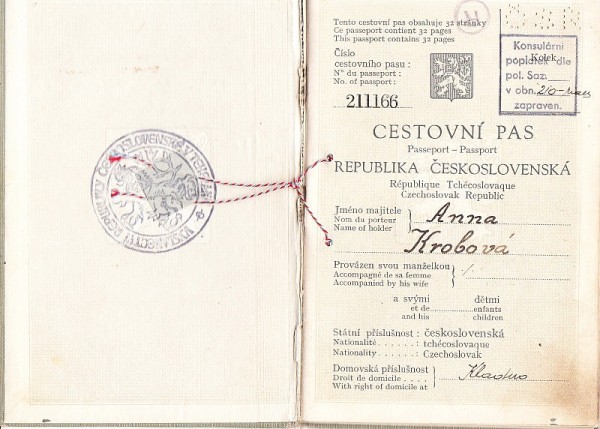 Tento cestovní pas obsahuje 32 stránky
Ce passeport contient 32 pages
This passport contains 32 pages
Číslo
cestovního pasu :
Nº du passeport :
No. of passport :
211166
Konsulární
Kolek
poplatek dle
pol. Saz.
v obn.
zapraven.
CESTOVNÍ PAS
Passeport – Passport
REPUBLIKA ČESKOSLOVENSKÁ
République Tchécoslovaque
Czechoslovak Republic
Jméno majitele
Nom du porteur
Name of holder
Anna
Krobová
Provázen svou manželkou
Accompagné de sa femme
Accompanied by his wife
a svými dětmi
et de enfants
and his children
Státní příslušnost : československá
Nationalité : tchécoslovaque
Nationality : Czechoslovak
Domovská příslušnost
Droit de domicile
With right of domicile at
Kladno
VYSLANECTVÍ REPUBLIKY ČESKOSLOVENSKÉ